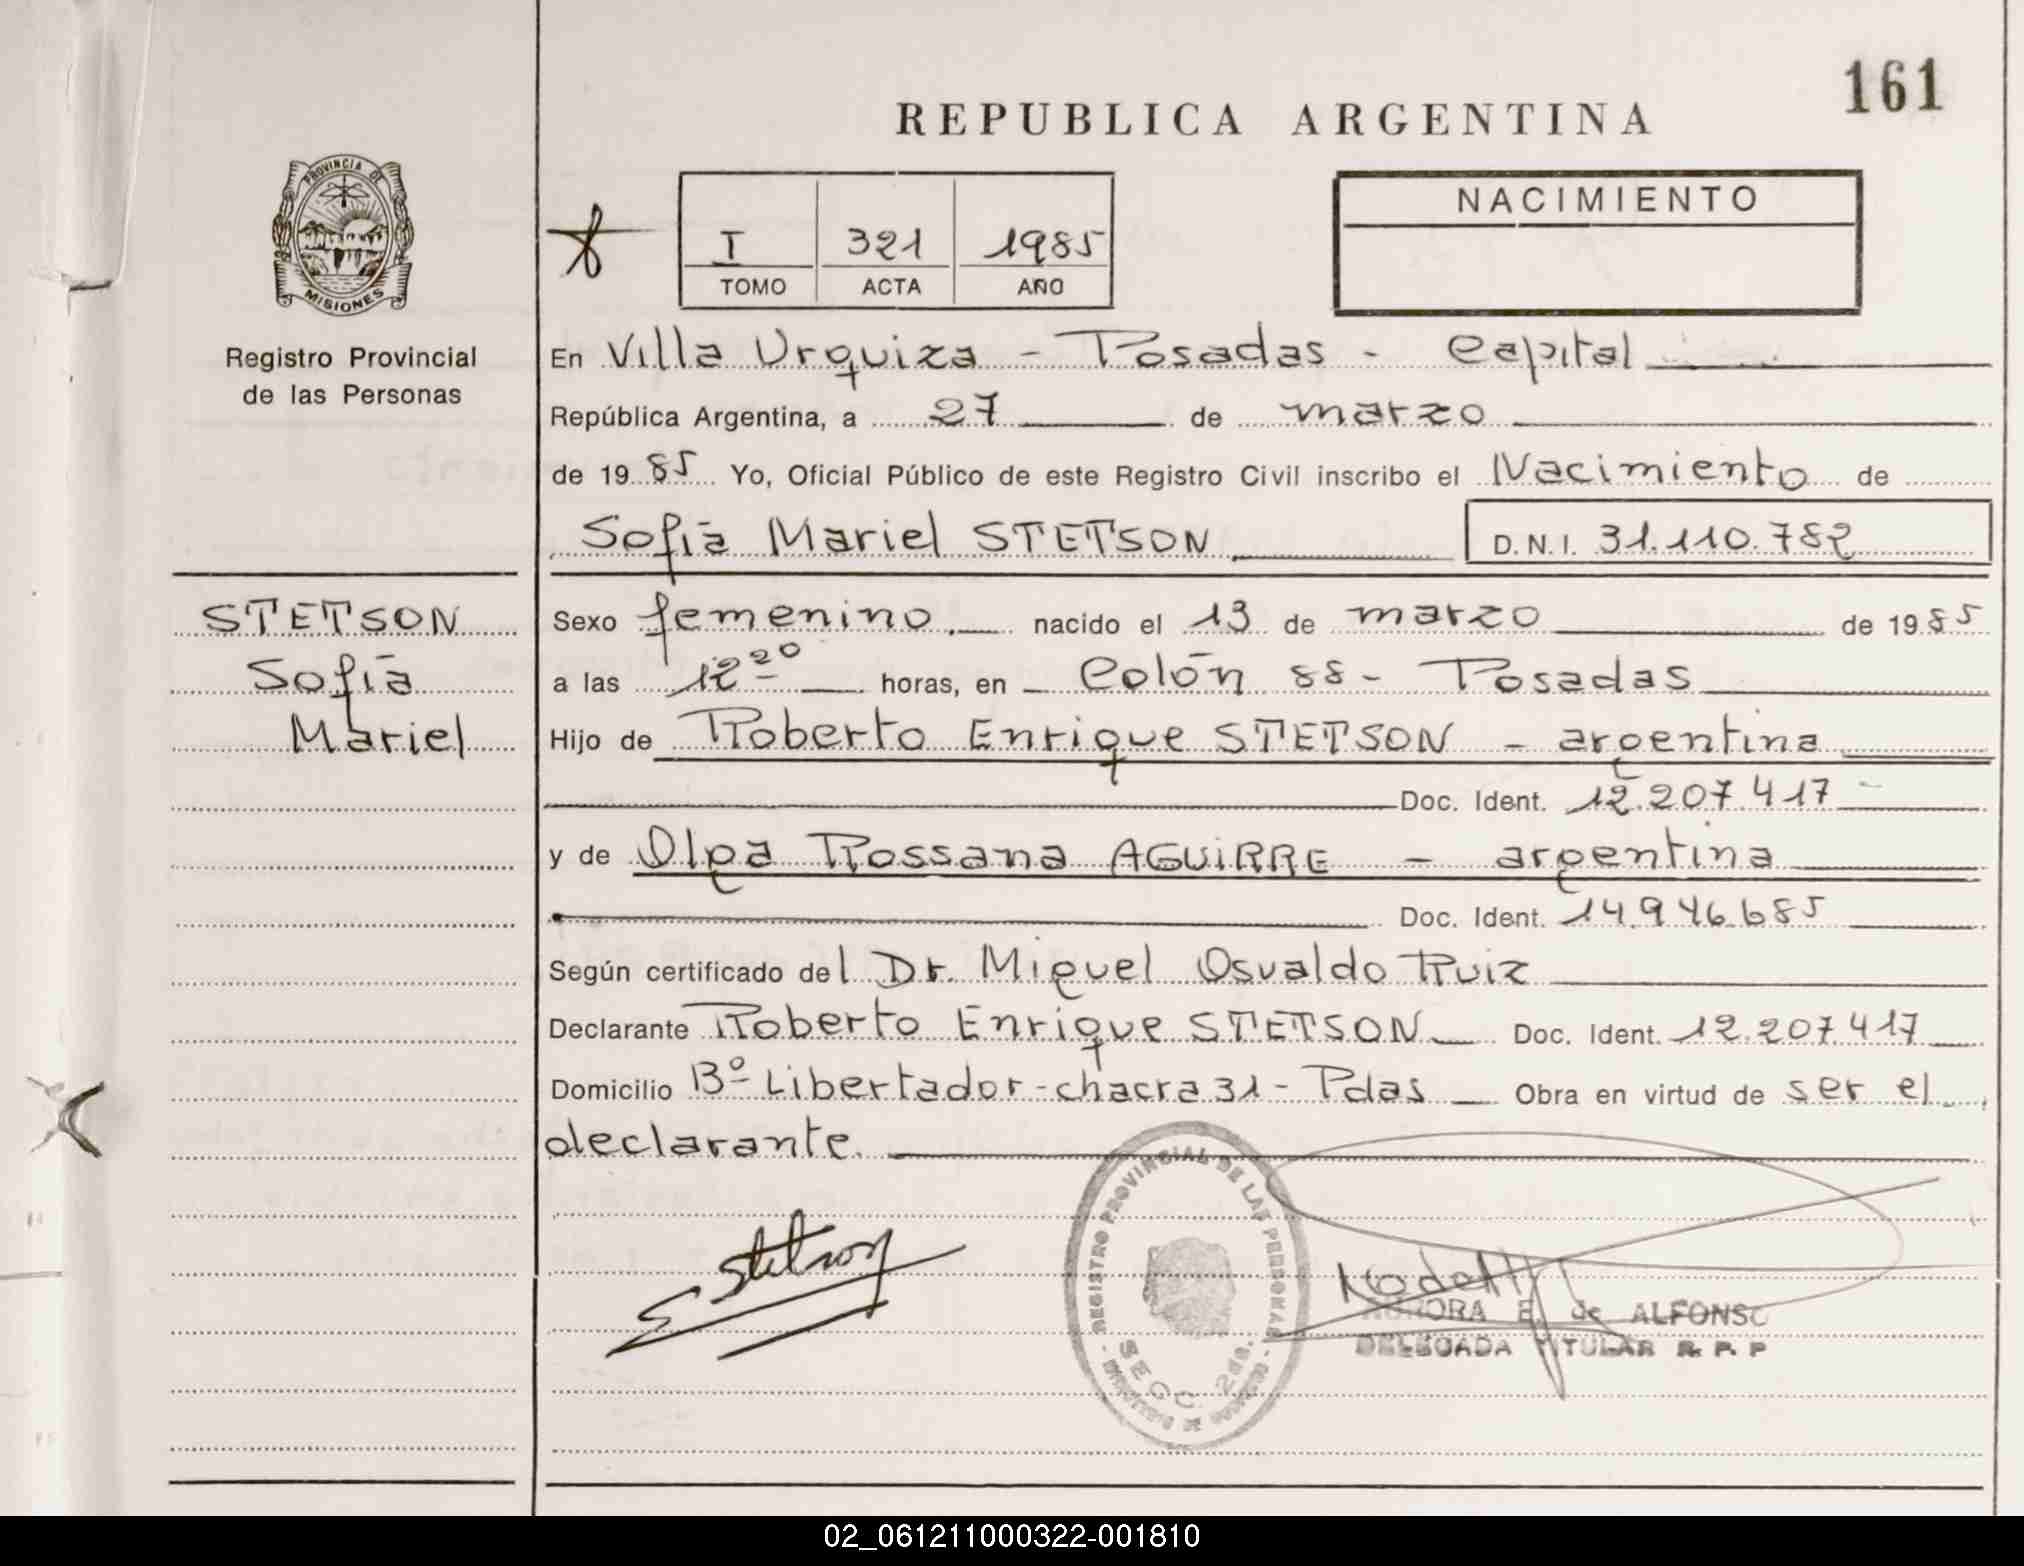 161
REPUBLICA ARGENTINA
PROVINCIA DE
MISIONES
Registro Provincial
de las Personas
I 321 1985
TOMO ACTA AÑO
NACIMIENTO
En Villa Urquiza - Posadas - Capital
República Argentina, a 27 de marzo
de 1985 Yo, Oficial Público de este Registro Civil inscribo el Nacimiento de
Sofía Mariel STETSON D.N.I. 31.110.782
STETSON
Sofía
Mariel
Sexo femenino. nacido el 13 de marzo de 1985
a las 12 20 horas, en Colón 88 - Posadas
Hijo de Roberto Enrique STETSON - argentina
Doc. Ident. 12.207.417
y de Olga Rossana AGUIRRE - argentina
Doc. Ident. 14.946.685
Según certificado del Dr. Miguel Osvaldo Ruiz
Declarante Roberto Enrique STETSON Doc. Ident. 12.207.417
Domicilio Bº Libertador - chacra 31 - Pdas Obra en virtud de ser el
declarante.
Stetson
REGISTRO PROVINCIAL DE LAS PERSONAS
SECC. 2da.
AURORA E. de ALFONSO
DELEGADA TITULAR R. P. P
02_061211000322-001810